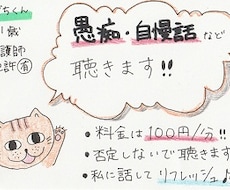 ぢちくん
1歳
護師
許㊒
愚痴・自慢話など
聴きます!!
・料金は100円/分!!
・否定しないで聴きます
・私に話してリフレッシュ♪